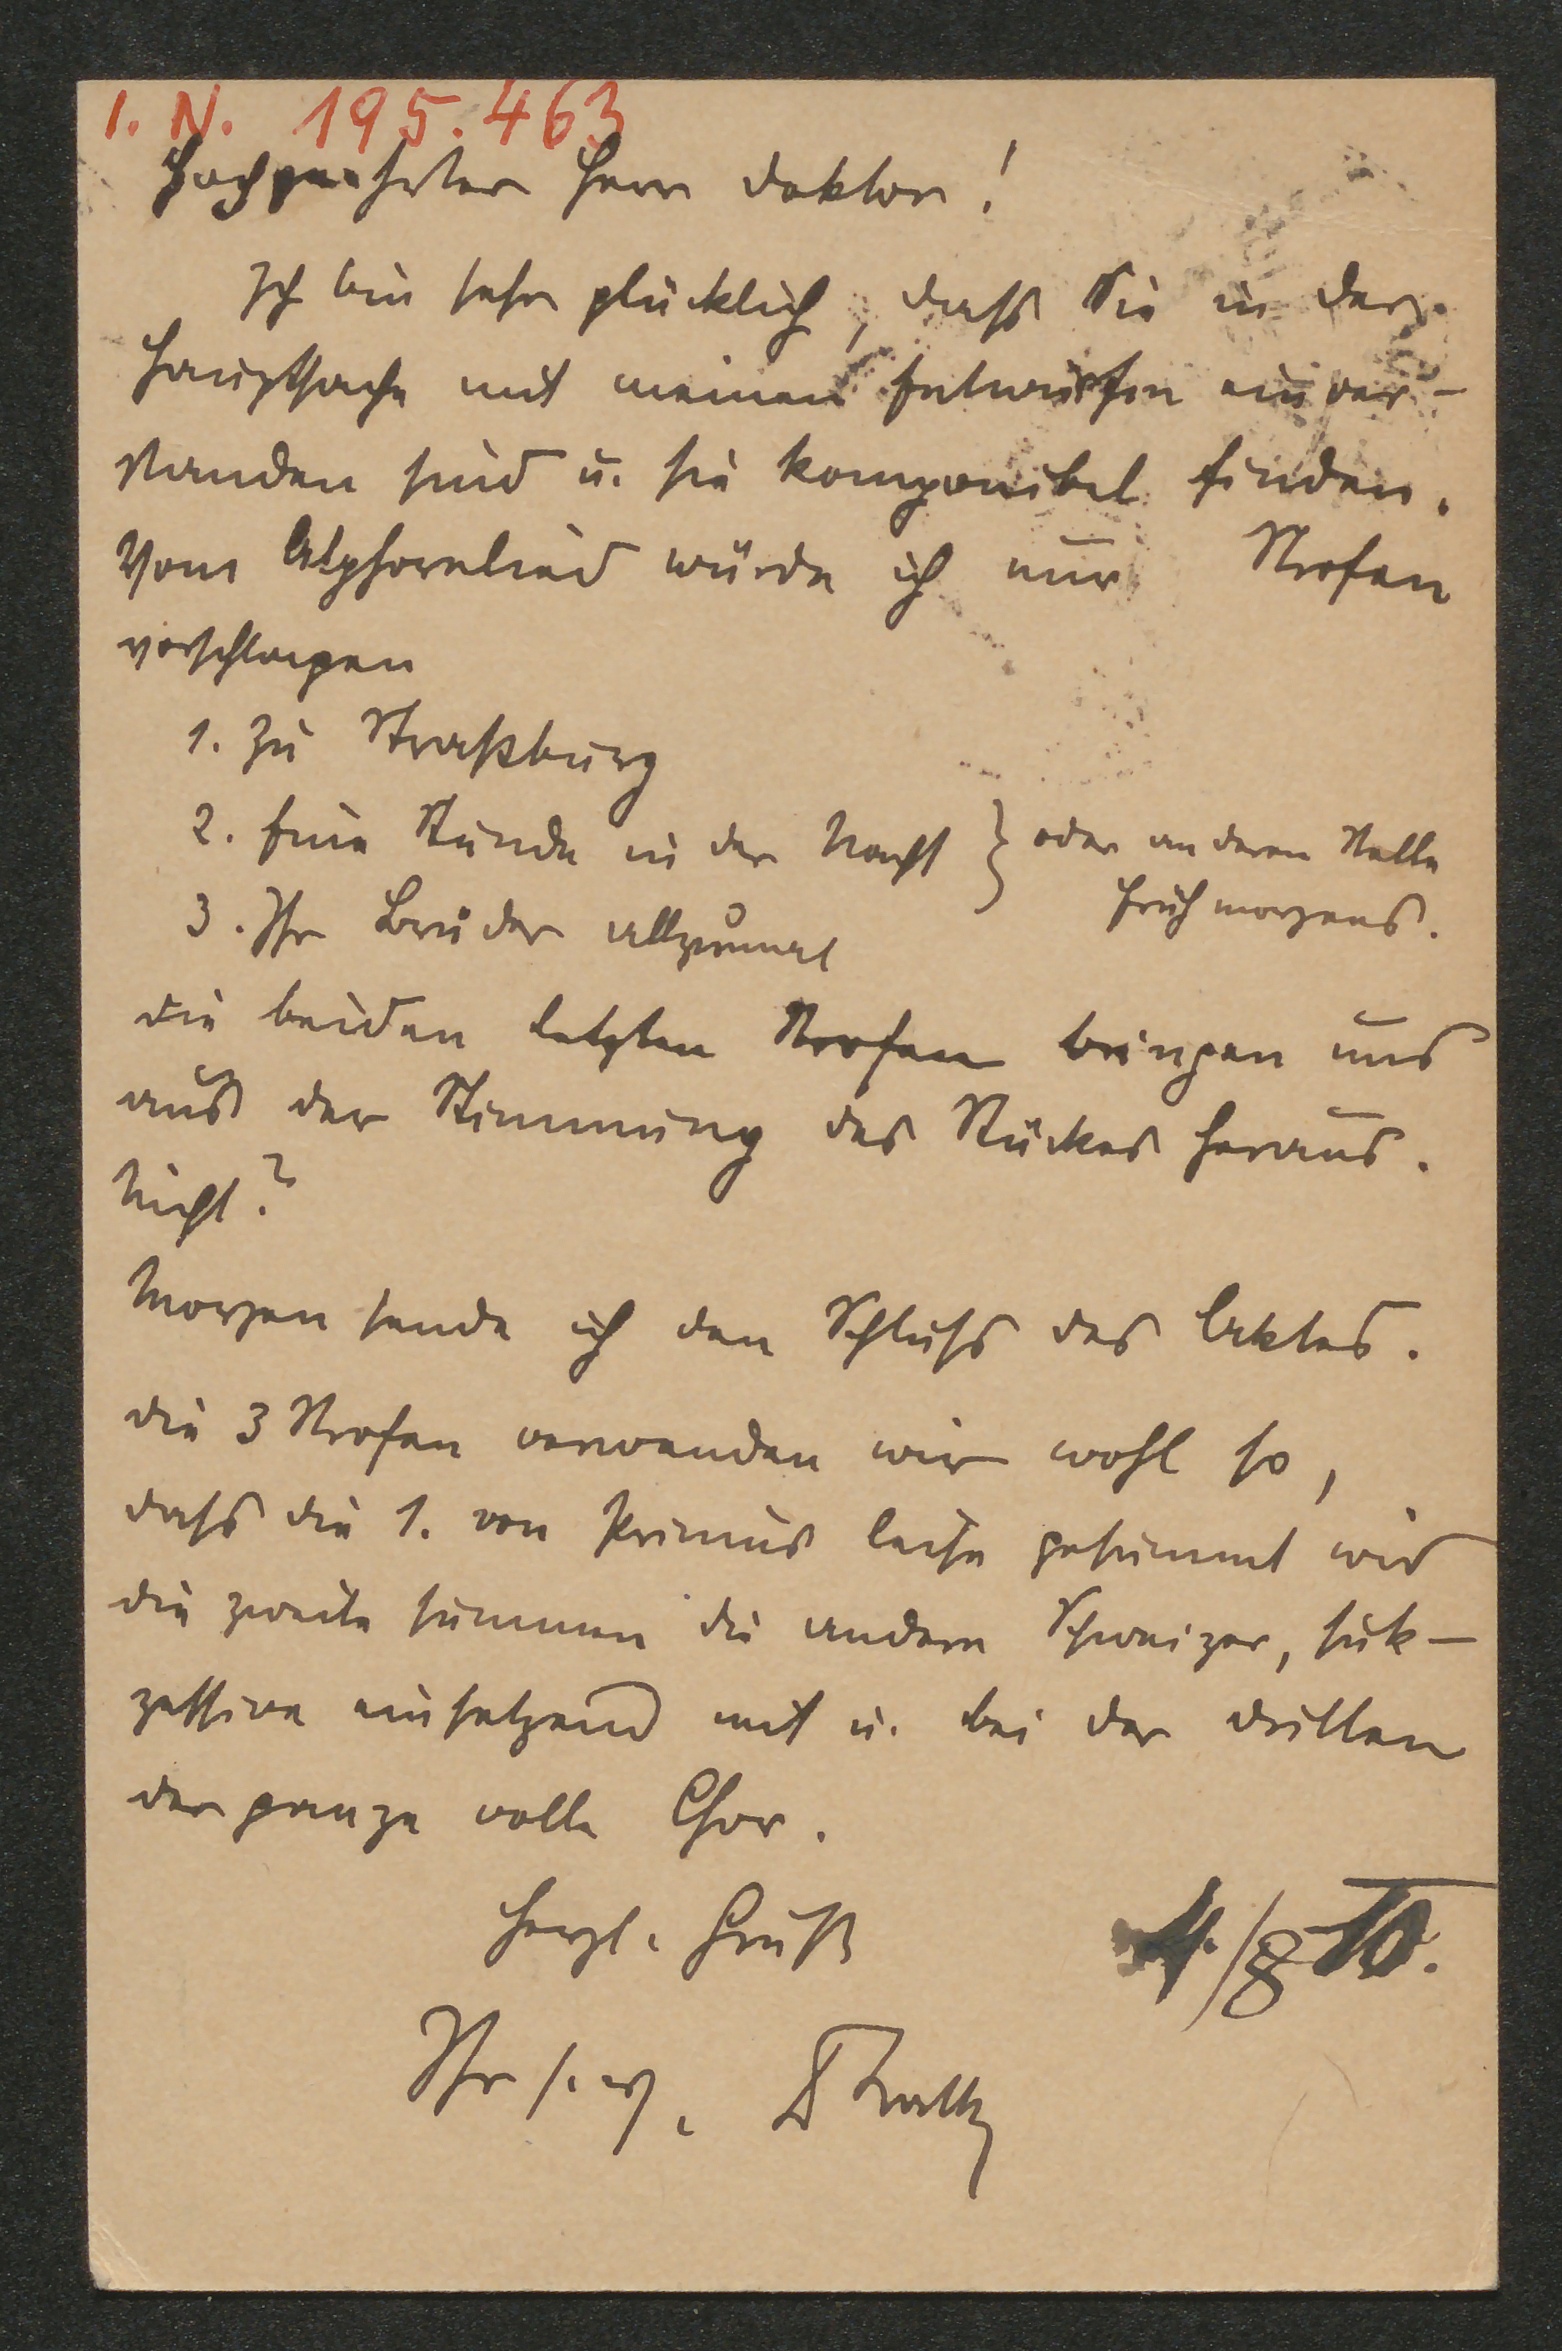 I. N. 195.463
Hochgeehrter Herr Doktor!
Ich bin sehr glücklich, dass Sie in der
Hauptsache mit meinen Entwürfen einver-
standen sind u. sie komponibel finden.
Vom Alphornlied würde ich nur Strofen
vorschlagen
1. Zu Straßburg
2. Eine Stunde in der Nacht } oder an deren Stelle
frühmorgens.
3. Ihr Brüder allzumal
die beiden letzten Strofen bringen uns
aus der Stimmung des Stückes heraus.
Nicht?
Morgen sende ich den Schluss des Aktes.
die 3 Strofen verwenden wir wohl so,
dass die 1. von Primus leise gesummt wird
die zweite summen die andern Schweizer, suk-
zessive einsetzend mit u. bei der dritten
der ganze volle Chor.
Herzl. Gruß
4./8 10.
Ihr s. erg. Batka